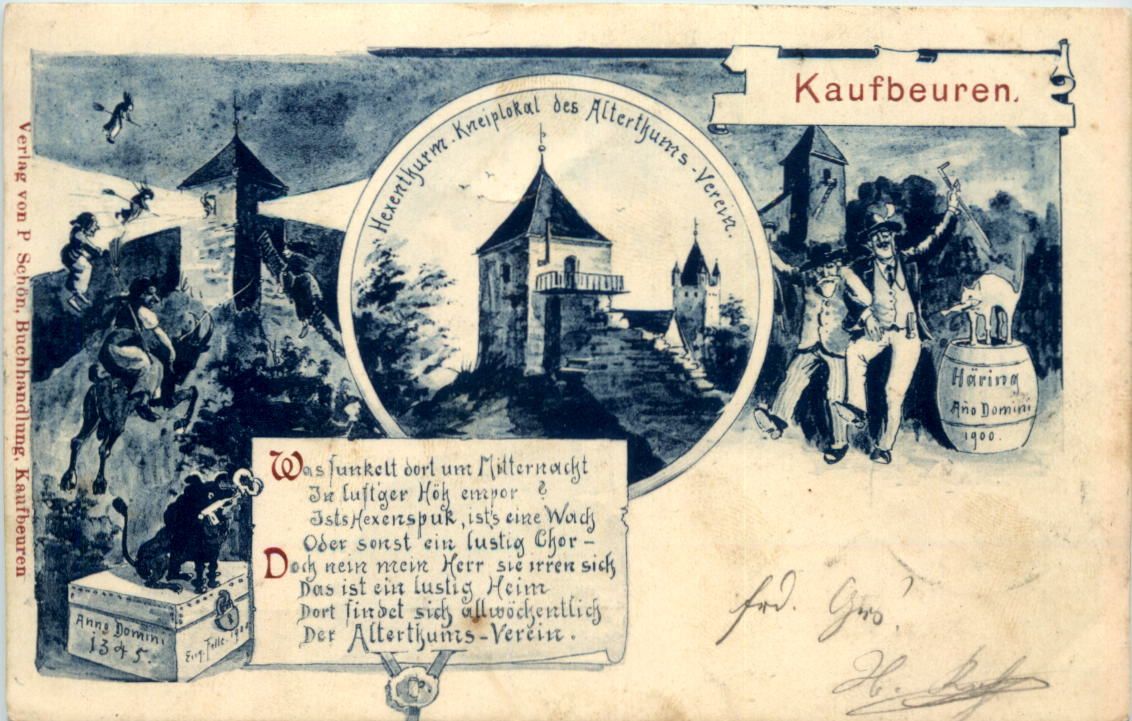 Kaufbeuren.
Hexenthurm. Kneiplokal des Alterthums-Verein.
Verlag von P Schön, Buchhandlung, Kaufbeuren
Häring
Año Domini
1900.
Was funkelt dort um Mitternacht
In luft'ger Höh empor ?
Ists Hexenspuk, ist's eine Wach
Oder sonst ein lustig Chor -
Doch nein mein Herr sie irren sich
Das ist ein lustig Heim
Dort findet sich allwöchentlich
Der Alterthums-Verein.
Anno Domini
1345.
Eug. Felle. 1900
frd.
H.